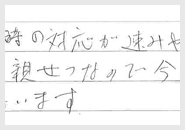 時の対応が速みや
親せつなので今
います